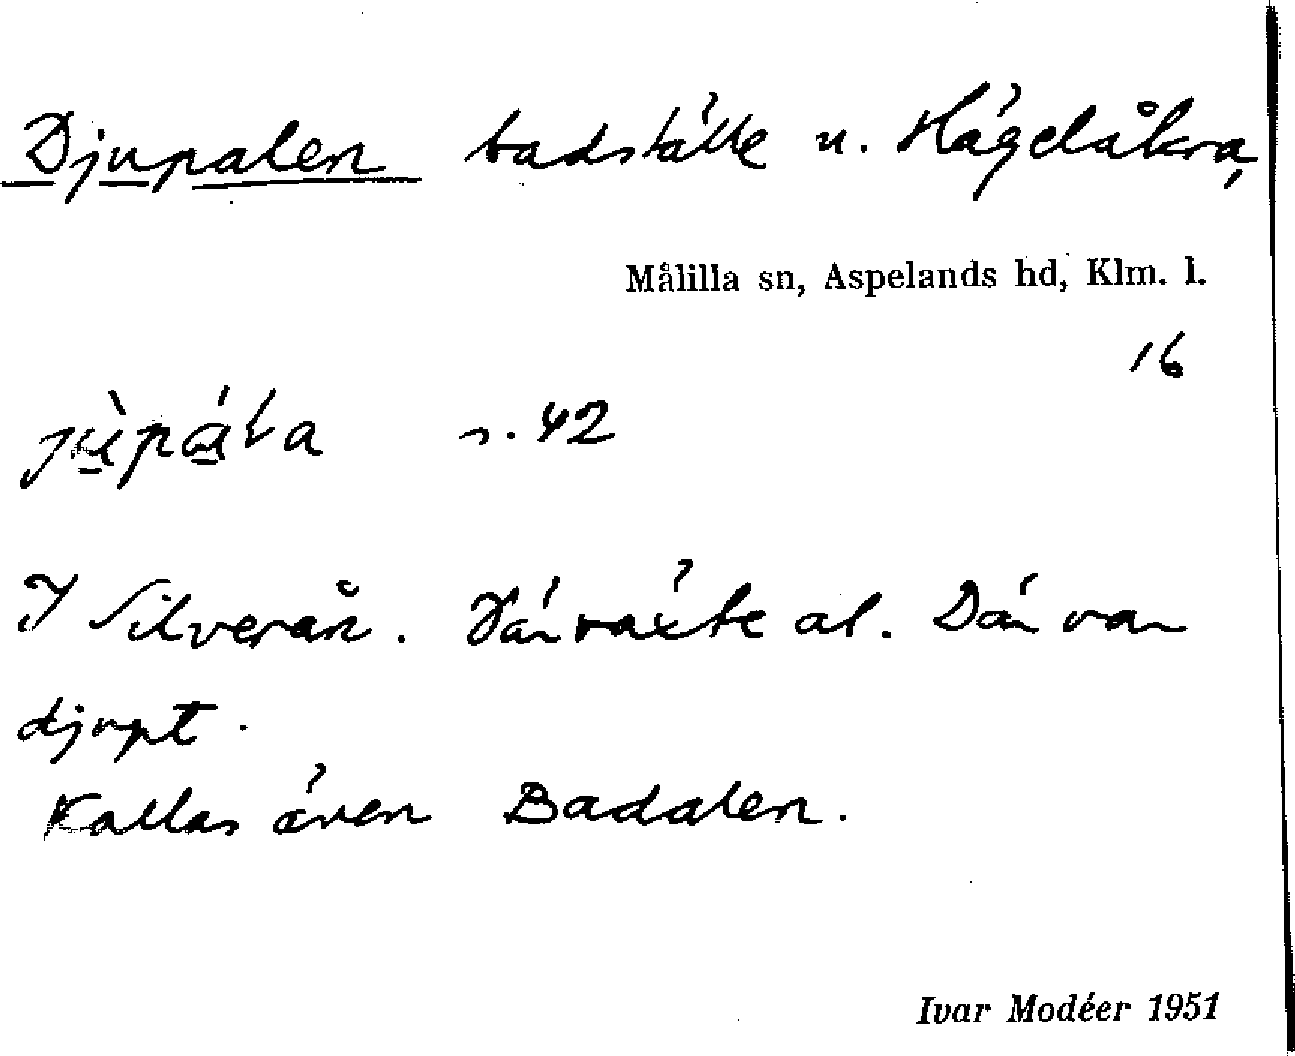 Djupalen badställe u. Hägelåkra,
Målilla sn, Aspelands hd, Klm. l.
16
s. 42
I Silverån. Där växte al. Där var
djupt.
Kallas även Badalen.
Ivar Modéer 1951